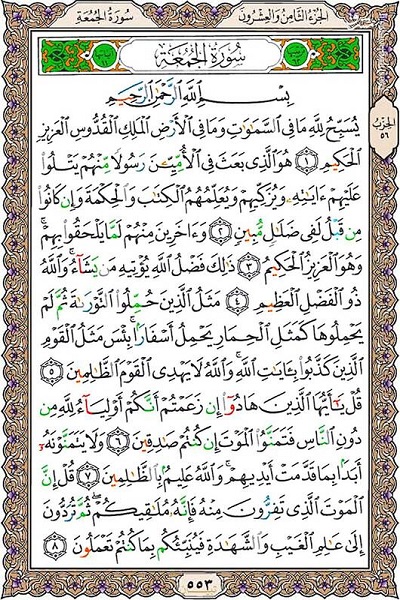 الجزء الثامن والعشرون
سورة الجمعة
سُورَةُ الجُمُعَةِ
الحزب
٥٦
بِسْمِ ٱللَّهِ ٱلرَّحْمَٰنِ ٱلرَّحِيمِ
يُسَبِّحُ لِلَّهِ مَا فِى ٱلسَّمَٰوَٰتِ وَمَا فِى ٱلْأَرْضِ ٱلْمَلِكِ ٱلْقُدُّوسِ ٱلْعَزِيزِ
ٱلْحَكِيمِ ١ هُوَ ٱلَّذِى بَعَثَ فِى ٱلْأُمِّيِّـۧنَ رَسُولًا مِّنْهُمْ يَتْلُوا۟
عَلَيْهِمْ ءَايَٰتِهِۦ وَيُزَكِّيهِمْ وَيُعَلِّمُهُمُ ٱلْكِتَٰبَ وَٱلْحِكْمَةَ وَإِن كَانُوا۟
مِن قَبْلُ لَفِى ضَلَٰلٍ مُّبِينٍ ٢ وَءَاخَرِينَ مِنْهُمْ لَمَّا يَلْحَقُوا۟ بِهِمْ ۚ
وَهُوَ ٱلْعَزِيزُ ٱلْحَكِيمُ ٣ ذَٰلِكَ فَضْلُ ٱللَّهِ يُؤْتِيهِ مَن يَشَآءُ ۚ وَٱللَّهُ
ذُو ٱلْفَضْلِ ٱلْعَظِيمِ ٤ مَثَلُ ٱلَّذِينَ حُمِّلُوا۟ ٱلتَّوْرَىٰةَ ثُمَّ لَمْ
يَحْمِلُوهَا كَمَثَلِ ٱلْحِمَارِ يَحْمِلُ أَسْفَارًۢا ۚ بِئْسَ مَثَلُ ٱلْقَوْمِ
ٱلَّذِينَ كَذَّبُوا۟ بِـَٔايَٰتِ ٱللَّهِ ۚ وَٱللَّهُ لَا يَهْدِى ٱلْقَوْمَ ٱلظَّٰلِمِينَ ٥
قُلْ يَٰٓأَيُّهَا ٱلَّذِينَ هَادُوٓا۟ إِن زَعَمْتُمْ أَنَّكُمْ أَوْلِيَآءُ لِلَّهِ مِن
دُونِ ٱلنَّاسِ فَتَمَنَّوُا۟ ٱلْمَوْتَ إِن كُنتُمْ صَٰدِقِينَ ٦ وَلَا يَتَمَنَّوْنَهُۥٓ
أَبَدًۢا بِمَا قَدَّمَتْ أَيْدِيهِمْ ۚ وَٱللَّهُ عَلِيمٌۢ بِٱلظَّٰلِمِينَ ٧ قُلْ إِنَّ
ٱلْمَوْتَ ٱلَّذِى تَفِرُّونَ مِنْهُ فَإِنَّهُۥ مُلَٰقِيكُمْ ۖ ثُمَّ تُرَدُّونَ
إِلَىٰ عَٰلِمِ ٱلْغَيْبِ وَٱلشَّهَٰدَةِ فَيُنَبِّئُكُم بِمَا كُنتُمْ تَعْمَلُونَ ٨
٥٥٣